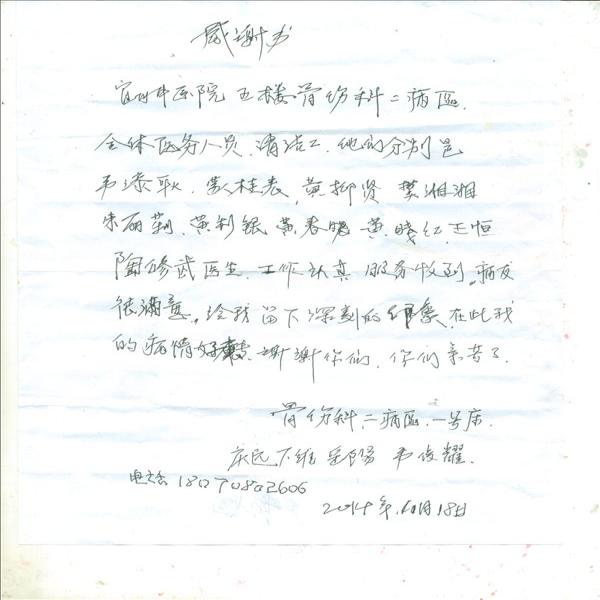 感谢书
宜州中医院五楼骨伤科二病区.
全体医务人员.清洁工.他们分别是
韦 桂 黄柳贤 樊湘湘
朱丽莉.黄利银 黄春 黄晓红.王恒
陶修武医生.工作认真 服务 到.病友
很满意.给我留下深刻的印象.在此我
的病情好转.谢谢你们.你们辛苦了.
骨伤科.二病区.一号床.
庆远下维 韦俊耀.
电话18070802606
2014年10月18日